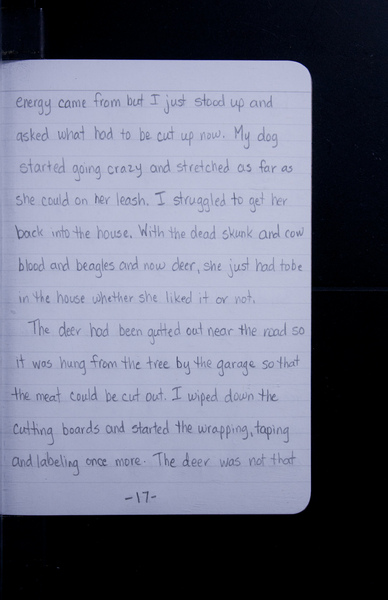 energy came from but I just stood up and
asked what had to be cut up now. My dog
started going crazy and stretched as far as
she could on her leash. I struggled to get her
back into the house. With the dead skunk and cow
blood and beagles and now deer, she just had to be
in the house whether she liked it or not.
The deer had been gutted out near the road so
it was hung from the tree by the garage so that
the meat could be cut out. I wiped down the
cutting boards and started the wrapping, taping
and labeling once more. The deer was not that
-17-